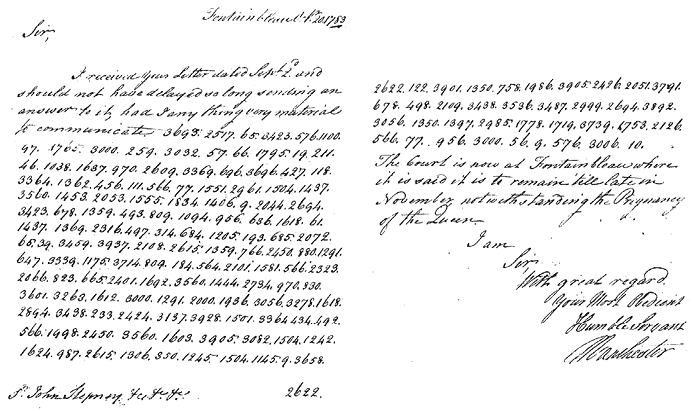 Fontainbleau Oct. 20 1783
Sir,
I received your Letter dated Sept. 2d and
should not have delayed so long sending an
answer to it, had I any thing very material
to communicate 3693. 2517. 65. 3423. 576. 1100.
97. 1765. 3000. 259. 3032. 57. 66. 1795. 19. 211.
46. 1038. 1637. 970. 2609. 3369. 696. 3696. 427. 118.
3364. 1362. 456. 111. 566. 77. 1551. 2961. 1504. 1437.
3560. 1453. 2033. 1555. 1834. 1406. 9. 2044. 2694.
3423. 678. 1359. 493. 809. 1094. 956. 636. 1618. 61.
1437. 1369. 2316. 497. 314. 684. 1205. 193. 685. 2072.
65. 39. 3459. 3937. 2108. 2615. 1359. 766. 2450. 880. 1291.
647. 3339. 1175. 3714. 809. 184. 564. 2101. 1581. 566. 2323.
2066. 823. 665. 2401. 1692. 3560. 1444. 2734. 970. 830.
3601. 3263. 1612. 3000. 1291. 2000. 1936. 3056. 3278. 1618.
2894. 3438. 233. 2424. 3137. 3928. 1501. 3364. 434. 492.
566. 1998. 2450. 3560. 1603. 3905. 3082. 1504. 1242.
1624. 987. 2615. 1306. 350. 1245. 1504. 1145. 9. 3658.
Sr. John Stepney &c &c &c. 2622.
2622. 122. 3901. 1350. 758. 1986. 3905. 2426. 2051. 3791.
678. 498. 2109. 3438. 3536. 3487. 2999. 2694. 3892.
3056. 1350. 1397. 2985. 1778. 1719. 3739. 1753. 2126.
566. 77. 956. 3000. 56. 9. 576. 3006. 10.
The Court is now at Fontainbleau where
it is said it is to remain till late in
November notwithstanding the Pregnancy
of the Queen.
I am
Sir,
With great regard
Your Most Obedient
Humble Servant
Manchester